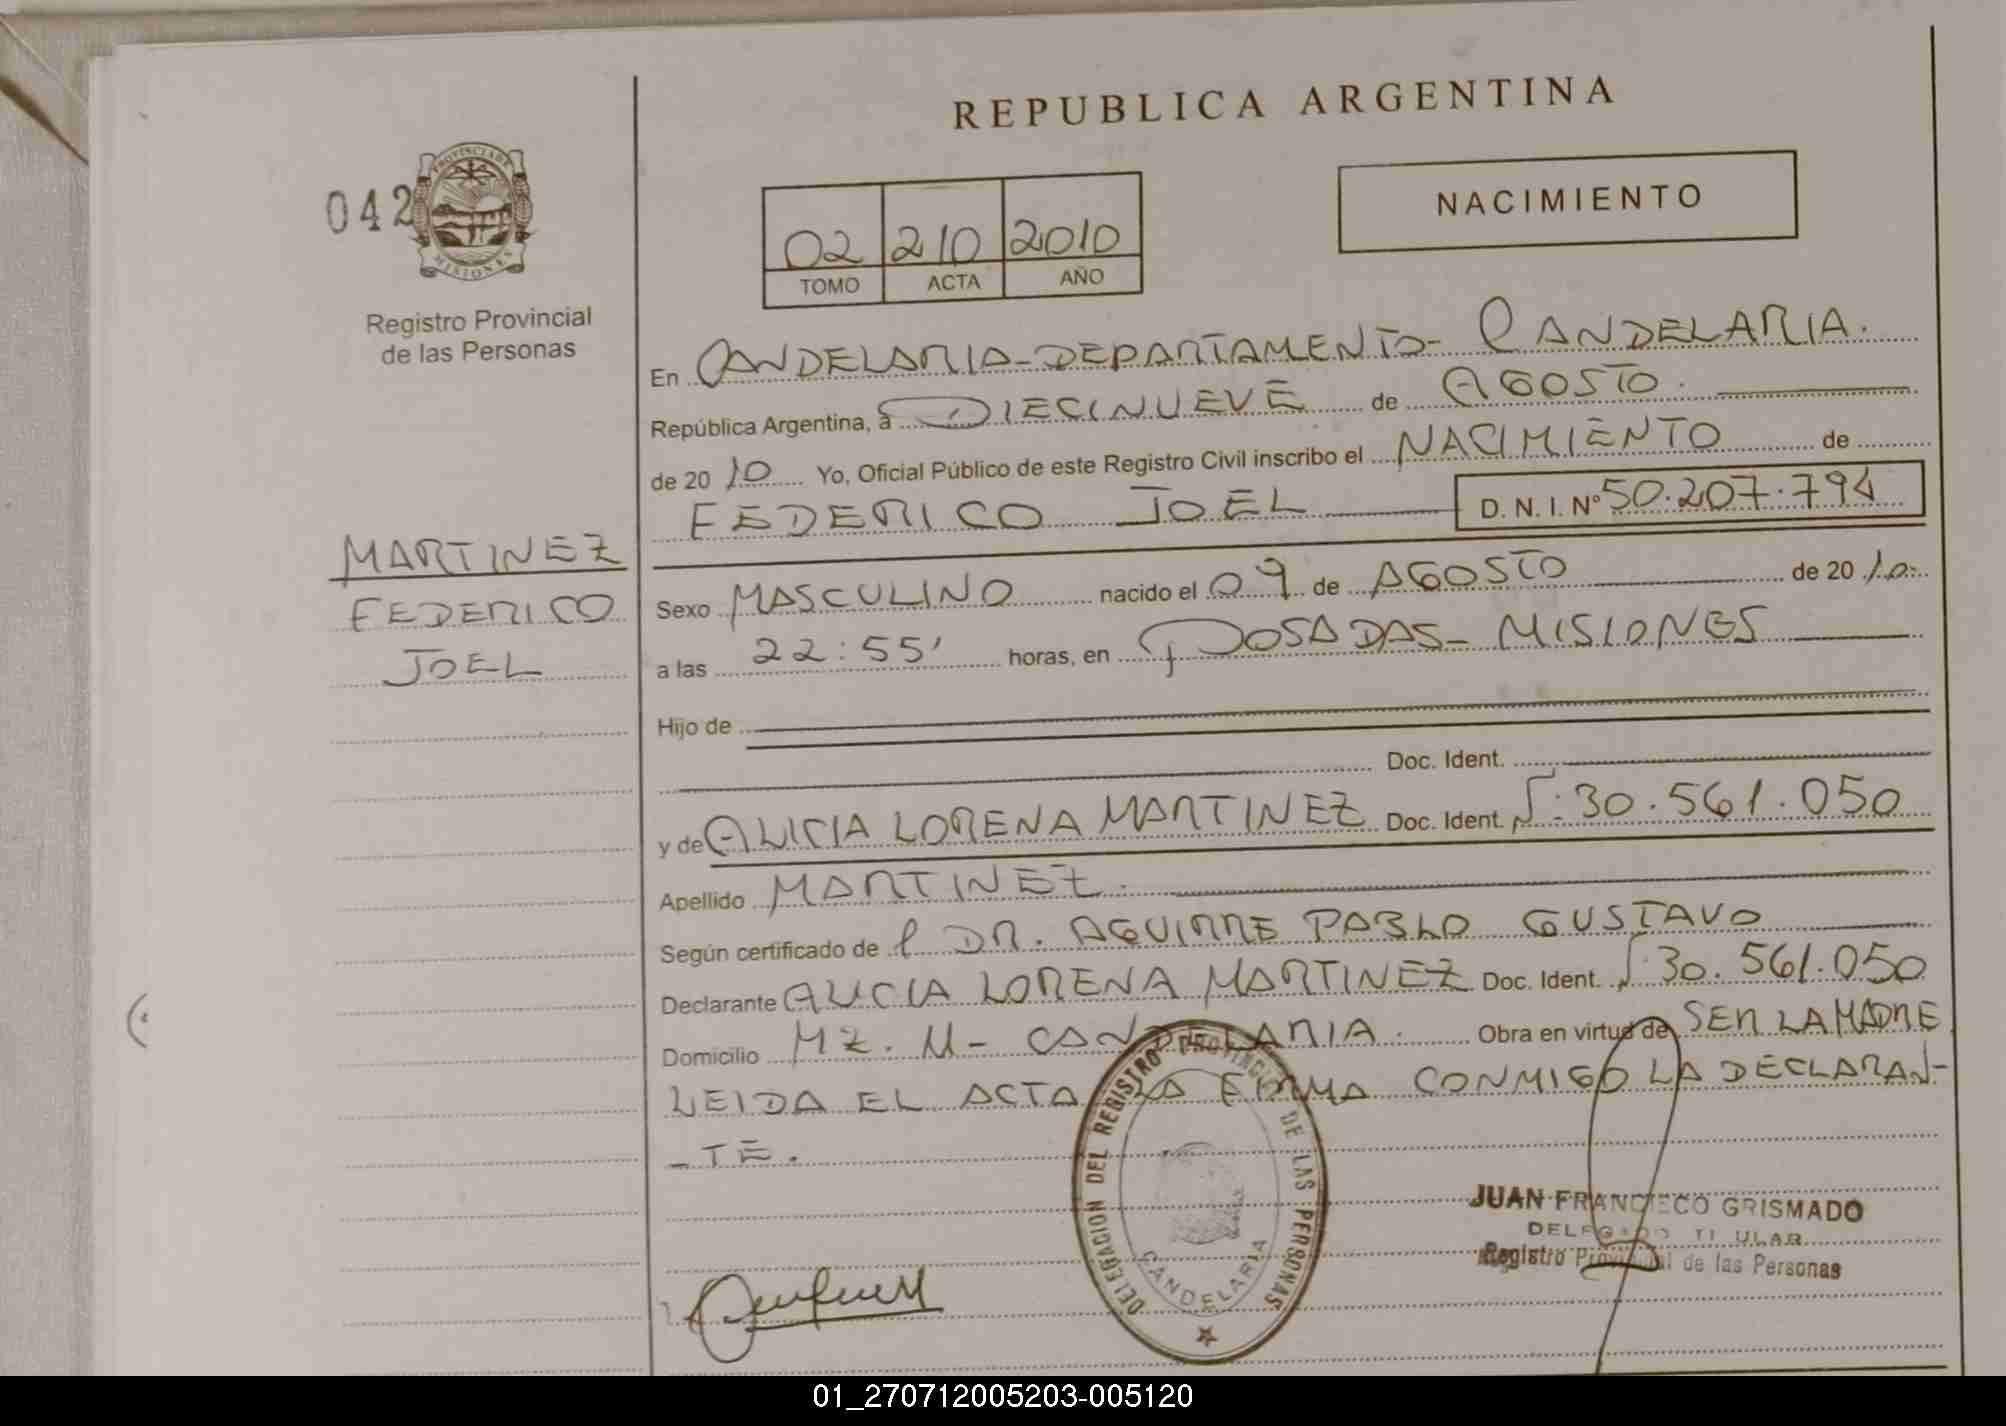 REPUBLICA ARGENTINA
042
PROVINCIA DE
MISIONES
Registro Provincial
de las Personas
NACIMIENTO
02 210 2010
TOMO ACTA AÑO
En CANDELARIA-DEPARTAMENTO- CANDELARIA.
República Argentina, a DIECINUEVE de AGOSTO.
de 20 10 Yo, Oficial Público de este Registro Civil inscribo el NACIMIENTO de
FEDERICO JOEL D. N. I. Nº 50.207.794
MARTINEZ
FEDERICO
JOEL
Sexo MASCULINO nacido el 09 de AGOSTO de 20 10
a las 22:55' horas, en POSADAS- MISIONES
Hijo de
Doc. Ident.
y de ALICIA LORENA MARTINEZ Doc. Ident. 30.561.050
Apellido MARTINEZ.
Según certificado de DR. AGUIRRE PABLO GUSTAVO
Declarante ALICIA LORENA MARTINEZ Doc. Ident. 30.561.050
Domicilio MZ. M- CANDELARIA. Obra en virtud de SER LA MADRE
LEIDA EL ACTA LA FIRMA CONMIGO LA DECLARAN-
-TE.
DELEGACION DEL REGISTRO PROVINCIAL DE LAS PERSONAS
CANDELARIA
JUAN FRANCISCO GRISMADO
DELEGADO TITULAR
Registro Provincial de las Personas
01_270712005203-005120